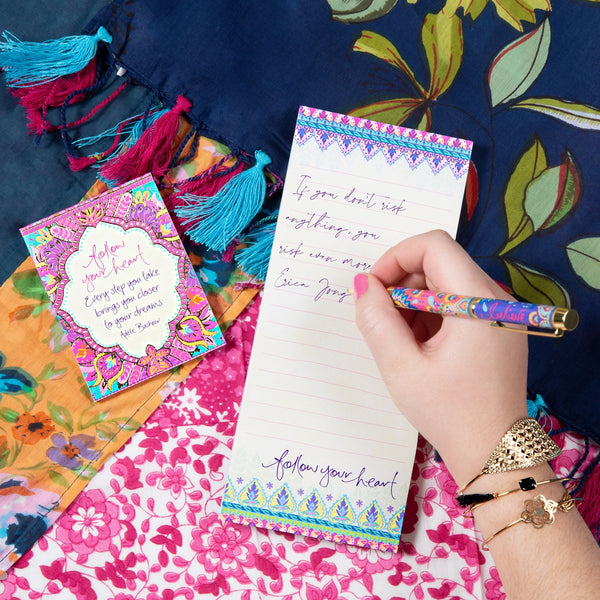 follow
your heart
Every step you take
brings you closer
to your dreams
If you don't risk
anything, you
risk even more
Erica Jong
follow your heart